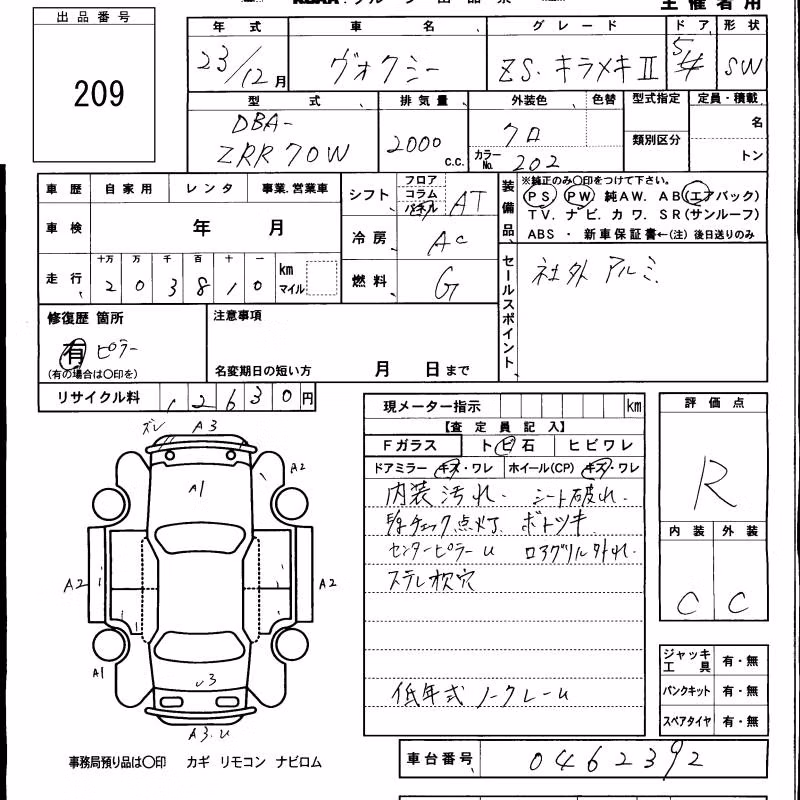 出品番号
209
主催者用
年式 車名 グレード ドア 形状
23/12月 ヴォクシー ZS.キラメキⅡ 5/4 SW
型式 排気量 外装色 色替 型式指定 定員・積載
DBA-
ZRR70W 2000 c.c. クロ カラーNo. 202 類別区分 名
トン
車歴 自家用 レンタ 事業.営業車
車検 年 月
走行 十万 万 千 百 十 一 km マイル
2 0 3 8 1 0
シフト フロア コラム パネル AT
冷房 AC
燃料 G
装備品
※純正のみ〇印をつけて下さい。
PS PW 純AW. AB(エアバック)
TV. ナビ. カワ. SR(サンルーフ)
ABS ・ 新車保証書←(注) 後日送りのみ
セールスポイント
社外 アルミ
修復歴 箇所
有 ピラー
(有の場合は〇印を)
注意事項
名変期日の短い方 月 日まで
リサイクル料 12630円
現メーター指示 km
【査定員記入】
Fガラス トビ石 ヒビワレ
ドアミラー キズ・ワレ ホイール(CP) キズ・ワレ
内装汚れ. シート破れ.
チェック点灯 ボトツキ
センターピラーU ロアグリル外れ.
ステレオ枕穴
低年式 ノークレーム
評価点
R
内装 外装
C C
ジャッキ工具 有・無
パンクキット 有・無
スペアタイヤ 有・無
ズレ A3
A1
A2
A2
A2
A1
U3
A3.U
事務局預り品は〇印 カギ リモコン ナビロム
車台番号 0462392